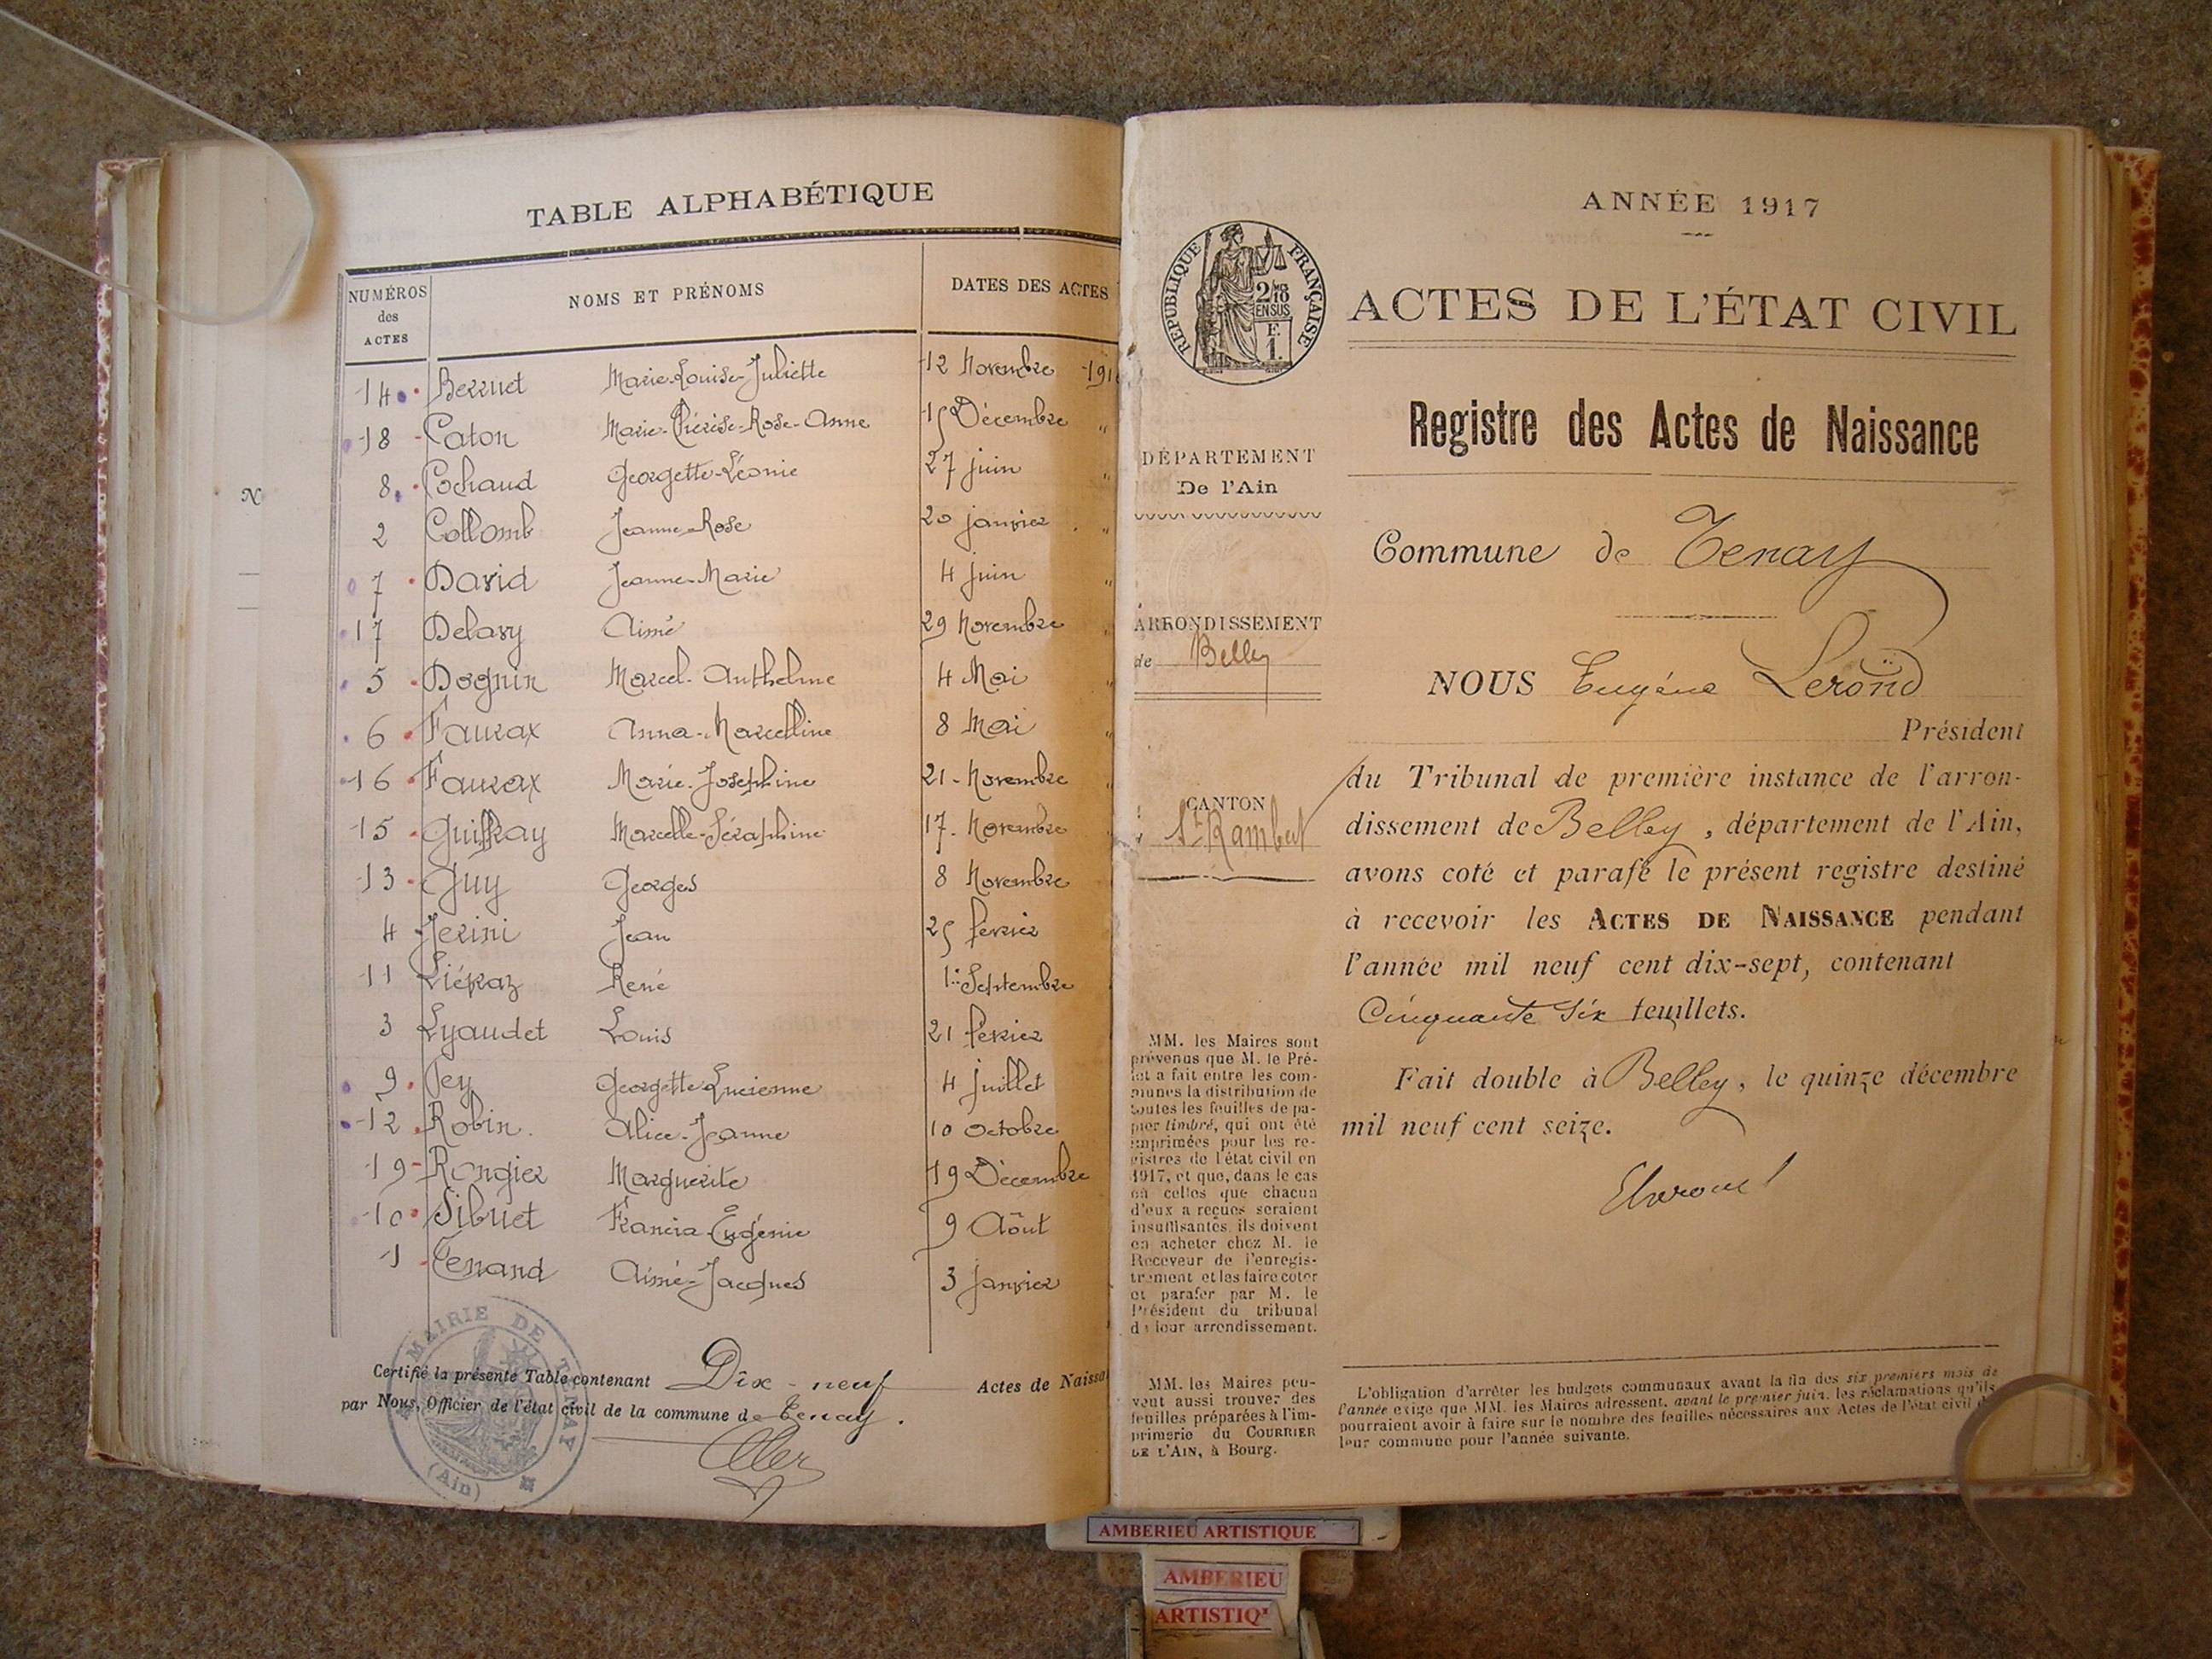 TABLE ALPHABÉTIQUE
NUMÉROS des ACTES NOMS ET PRÉNOMS DATES DES ACTES
14 Berruet Marie-Louise-Juliette 12 Novembre 191
18 Caton Marie-Thérèse-Rose-Anne 15 Décembre "
8 Cochaud Georgette-Léonie 27 juin "
2 Collomb Jeanne-Rose 20 janvier "
7 David Jeanne-Marie 4 juin "
17 Delavy Aimé 29 Novembre
5 Dognin Marcel-Anthelme 4 Mai "
6 Faurax Anna-Marcelline 8 Mai "
16 Faurax Marie-Joséphine 21 Novembre "
15 Guiffray Marcelle-Séraphine 17 Novembre
13 Guy Georges 8 Novembre
4 Jerini Jean 25 fevrier
11 Liévaz René 1er Septembre
3 Lyaudet Louis 21 fevrier
9 Pey Georgette-Lucienne 4 juillet
12 Robin Alice-Jeanne 10 Octobre
19 Rongier Marguerite 19 Décembre
10 Sibuet Francia-Eugénie 9 Août
1 Tenand Aimé-Jacques 3 janvier
Certifié la présente Table contenant Dix-neuf Actes de Naissa
par Nous, Officier de l'état civil de la commune de Tenay.
MAIRIE DE TENAY
(Ain)
N
ANNÉE 1917
RÉPUBLIQUE FRANÇAISE
2/10
EN SUS
F.
1.
ACTES DE L'ÉTAT CIVIL
Registre des Actes de Naissance
DÉPARTEMENT
De l'Ain
ARRONDISSEMENT
de Belley
CANTON
St Rambert
MM. les Maires sont
prévenus que M. le Pré-
fet a fait entre les com-
munes la distribution de
toutes les feuilles de pa-
pier timbré, qui ont été
imprimées pour les re-
gistres de l'état civil en
1917, et que, dans le cas
où celles que chacun
d'eux a reçues seraient
insuffisantes, ils doivent
en acheter chez M. le
Receveur de l'enregis-
trement et les faire coter
et parafer par M. le
Président du tribunal
de leur arrondissement.
MM. les Maires peu-
vent aussi trouver des
feuilles préparées à l'im-
primerie du COURRIER
DE L'AIN, à Bourg.
Commune de Tenay
NOUS Eugène Lerond
Président
du Tribunal de première instance de l'arron-
dissement de Belley, département de l'Ain,
avons coté et parafé le présent registre destiné
à recevoir les ACTES DE NAISSANCE pendant
l'année mil neuf cent dix-sept, contenant
Cinquante six feuillets.
Fait double à Belley, le quinze décembre
mil neuf cent seize.
L'obligation d'arrêter les budgets communaux avant la fin des six premiers mois de
l'année exige que MM. les Maires adressent, avant le premier juin, les réclamations qu'ils
pourraient avoir à faire sur le nombre des feuilles nécessaires aux Actes de l'état civil de
leur commune pour l'année suivante.
AMBERIEU ARTISTIQUE
AMBERIEU
ARTISTIQ